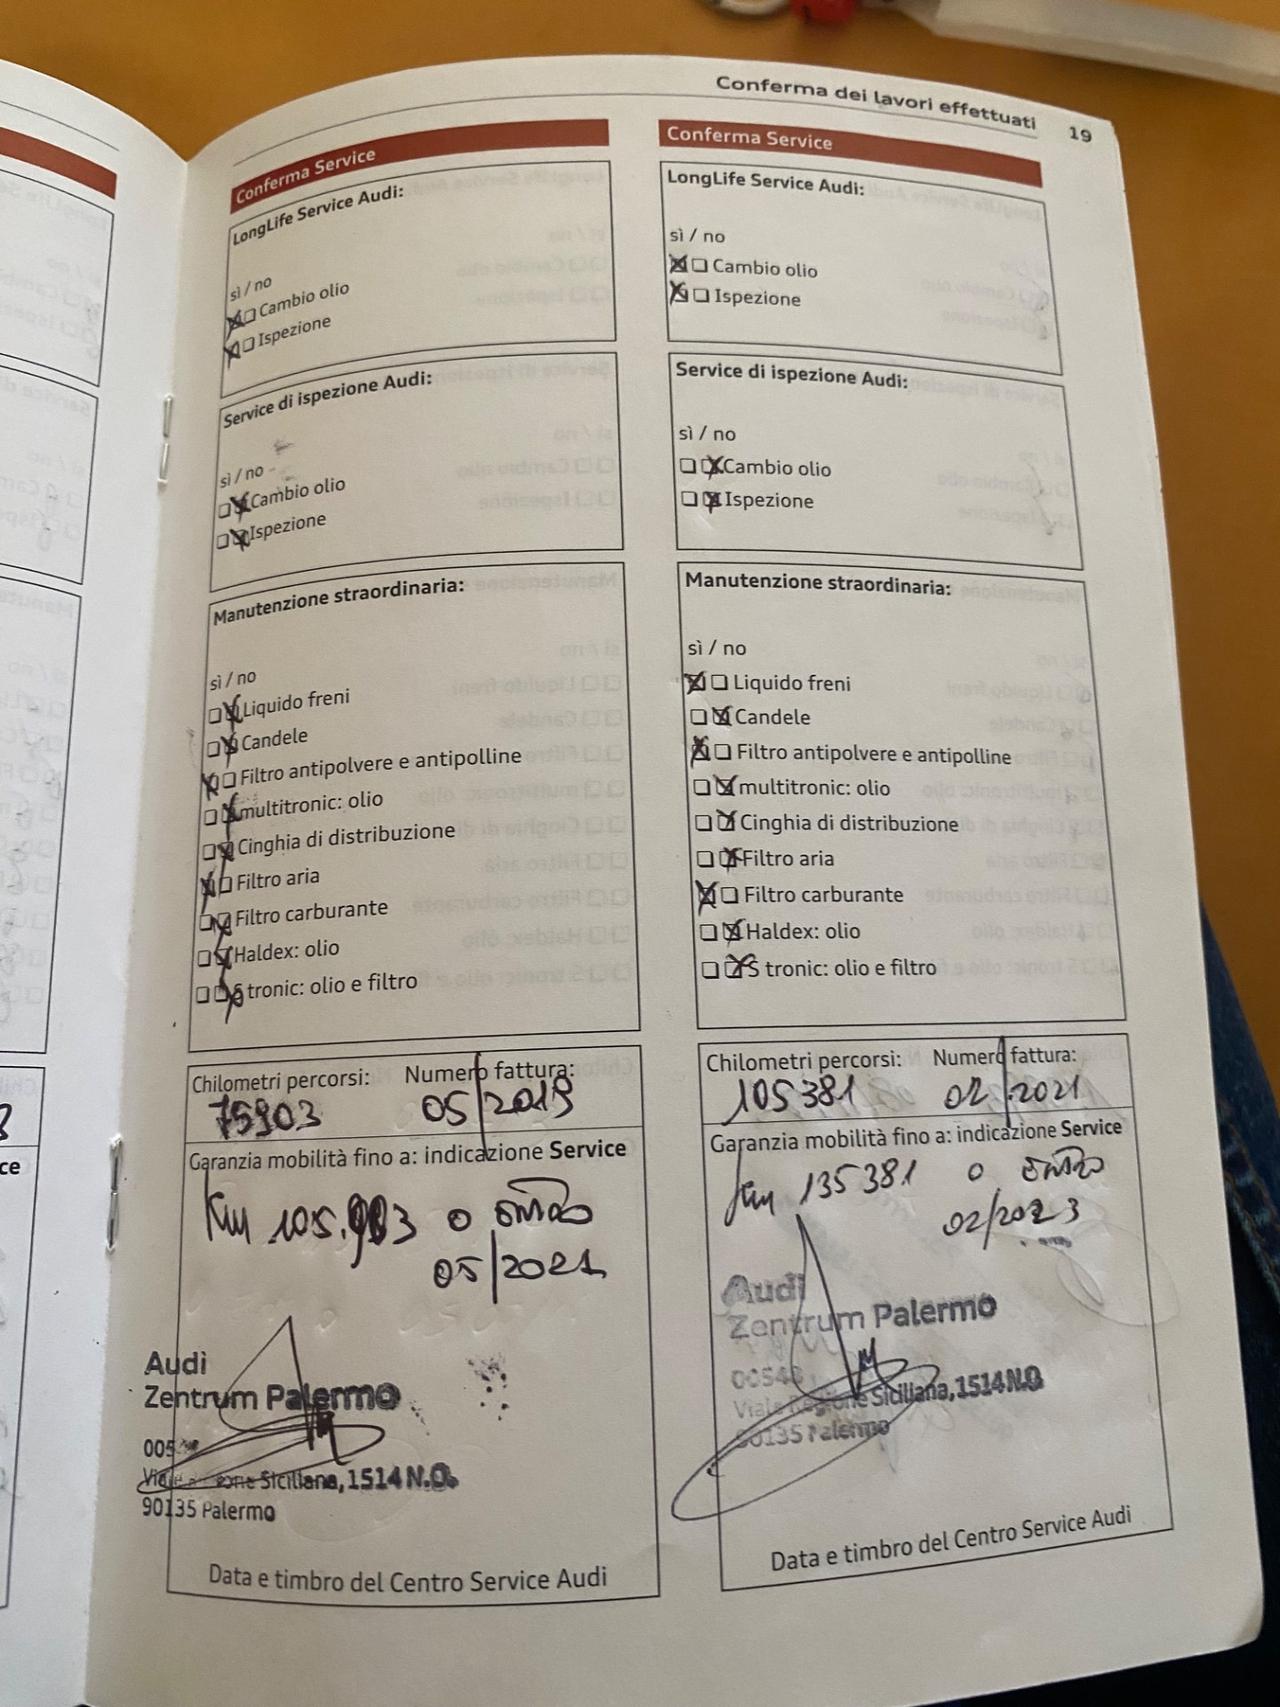 Conferma dei lavori effettuati 19
Conferma Service
LongLife Service Audi:
sì / no
Cambio olio
Ispezione
Service di ispezione Audi:
sì / no
Cambio olio
Ispezione
Manutenzione straordinaria:
sì / no
Liquido freni
Candele
Filtro antipolvere e antipolline
multitronic: olio
Cinghia di distribuzione
Filtro aria
Filtro carburante
Haldex: olio
S tronic: olio e filtro
Chilometri percorsi: Numero fattura:
75903 05/2019
Garanzia mobilità fino a: indicazione Service
Km 105.903 o entro
05/2021
Audi
Zentrum Palermo
005
Siciliana, 1514 N.O.
90135 Palermo
Data e timbro del Centro Service Audi
Conferma Service
LongLife Service Audi:
sì / no
Cambio olio
Ispezione
Service di ispezione Audi:
sì / no
Cambio olio
Ispezione
Manutenzione straordinaria:
sì / no
Liquido freni
Candele
Filtro antipolvere e antipolline
multitronic: olio
Cinghia di distribuzione
Filtro aria
Filtro carburante
Haldex: olio
S tronic: olio e filtro
Chilometri percorsi: Numero fattura:
105381 02/2021
Garanzia mobilità fino a: indicazione Service
Km 135381 o entro
02/2023
Audi
Zentrum Palermo
Viale Regione Siciliana, 1514 N.O.
90135 Palermo
Data e timbro del Centro Service Audi